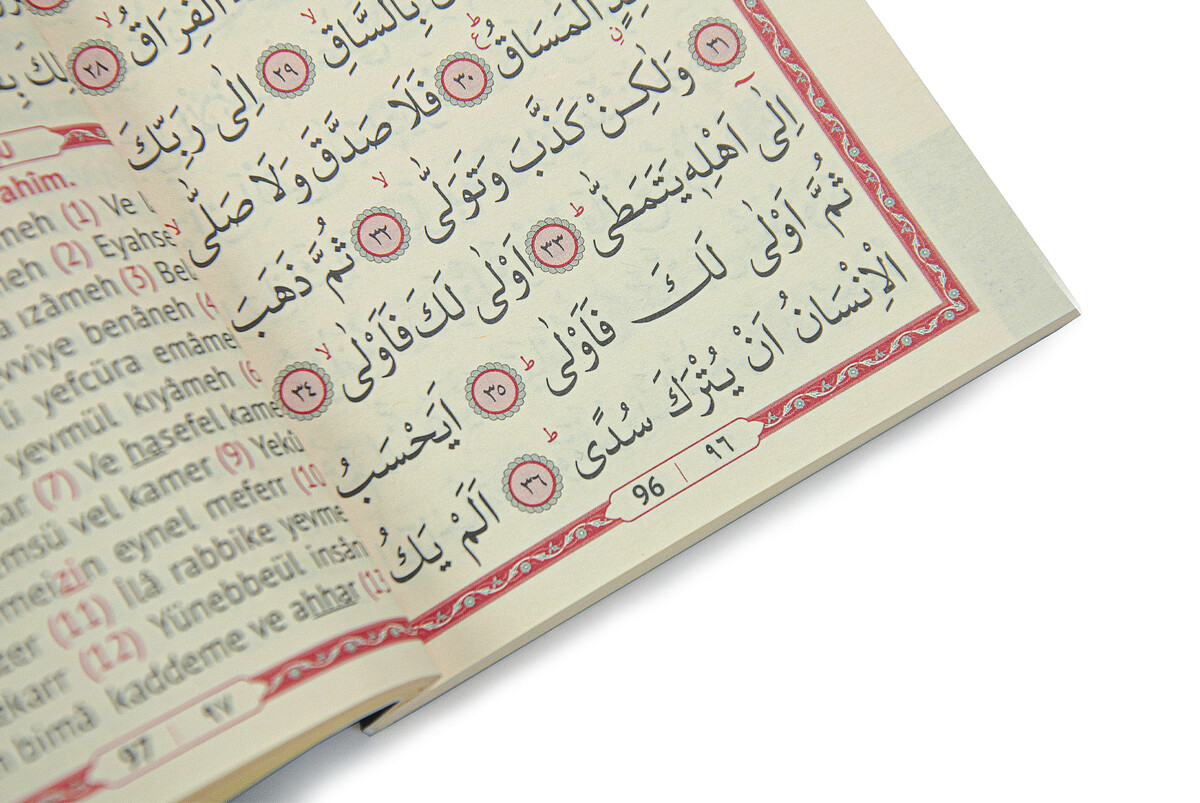 الْفِرَاقُ ٢٨
بِالسَّاقِ ٢٩ اِلٰى رَبِّكَ
الْمَسَاقُ ٣٠ فَلَا صَدَّقَ وَلَا صَلّٰى
٣١ وَلٰكِنْ كَذَّبَ وَتَوَلّٰى ٣٢ ثُمَّ ذَهَبَ
اِلٰٓى اَهْلِهٖ يَتَمَطّٰى ٣٣ اَوْلٰى لَكَ فَاَوْلٰى ٣٤
ثُمَّ اَوْلٰى لَكَ فَاَوْلٰى ٣٥ اَيَحْسَبُ
الْاِنْسَانُ اَنْ يُتْرَكَ سُدًى ٣٦ اَلَمْ يَكُ
96 | ٩٦
ahîm.
neh (1) Ve
meh (2) Eyahse
a ızâmeh (3) Bel
vviye benâneh (4
li yefcüra emâme
yevmül kıyâmeh (6
ar (7) Ve hasefel kame
msü vel kamer (9) Yekû
meizin eynel meferr (10
zer (11) İlâ rabbike yevme
ekarr (12) Yünebbeül insân
bimâ kaddeme ve ahhar (13
97 | ٩٧